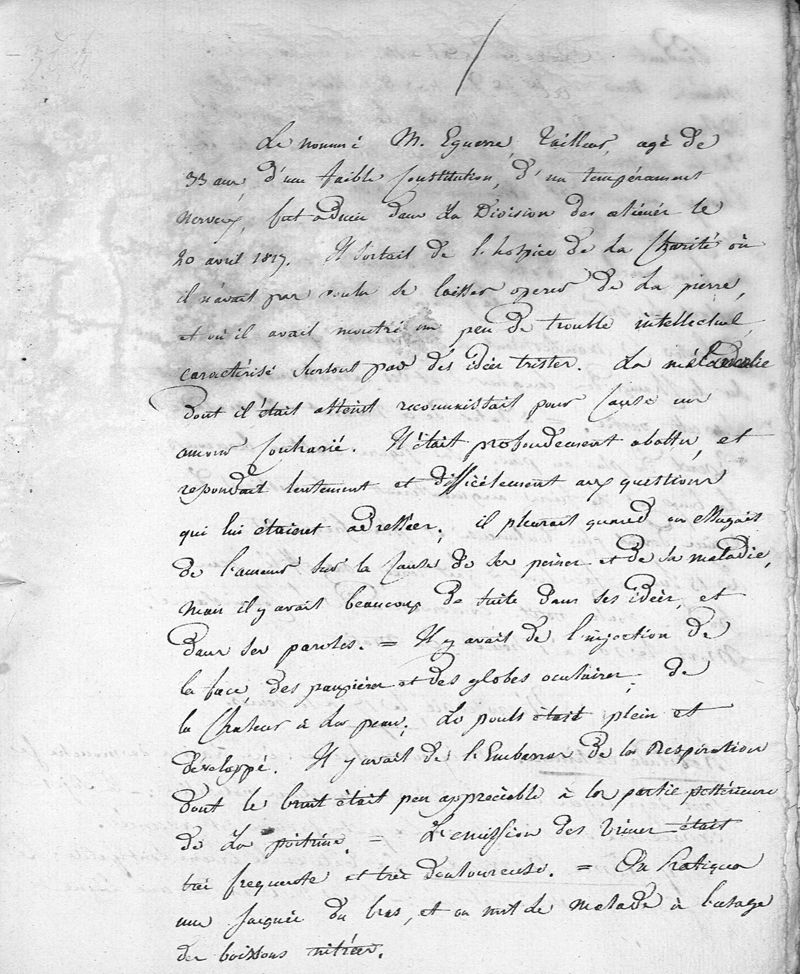 Le nommé M. Eguerre, Tailleur, agé de
33 ans, d'une faible Constitution, d'un tempérament
nerveux, fut admis dans La Division des aliénés le
20 avril 1817. Il sortait de l'hospice de La Charité où
il n'avait pas voulu se laisser operer de La pierre,
et où il avait montré un peu de trouble intellectuel,
caractérisé surtout par des idées tristes. La mélancolie
dont il était atteint reconnaissait pour Cause un
amour Contrarié. Il était profondement abattu, et
repondait lentement et difficilement aux questions
qui lui étaient adressées; il pleurait quand on
de l'amener sur la Cause de ses peines et de sa maladie,
mais il y avait beaucoup de suite dans ses idées, et
dans ses paroles. = Il y avait de l'injection de
la face, des paupières et des globes oculaires; de
la Chaleur à La peau; Le pouls était plein et
développé. Il y avait de l'Embarras de la Respiration
dont le bruit était peu appréciable à la partie postérieure
de La poitrine. = L'emission des Urines était
très frequente et très douloureuse. = On Pratiqua
une saignée du bras, et on mit le malade à l'usage
des boissons nitrées.